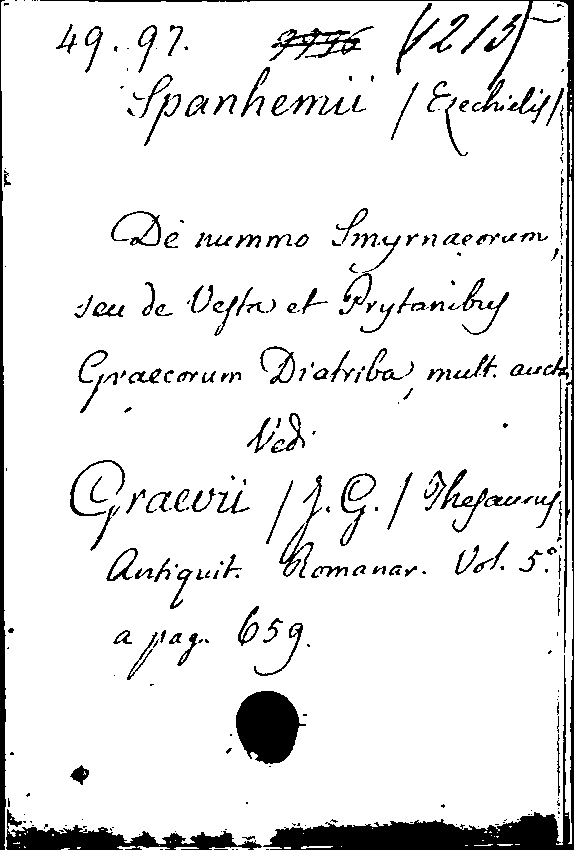 49. 97. (1213)
Spanhemii / Ezechielis /
De nummo Smyrnaeorum,
seu de Vesta et Prytanibus
Graecorum Diatriba, mult. aucta,
Vedi
Graevii / J. G. / Thesaurus
Antiquit. Romanar. Vol. 5.°
a pag. 659.